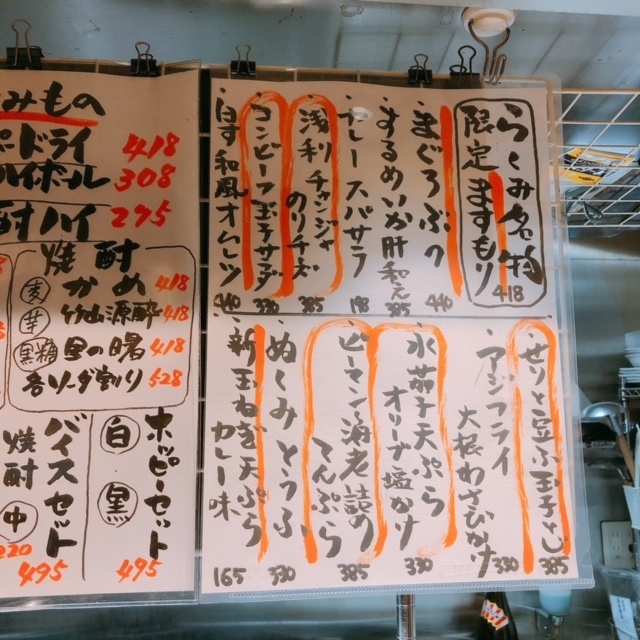 らくみ名物
限定ますもり
418
まぐろぶつ
440
するめいか肝和え
385
カレースパサラ
198
浅利チャンジャ
のりチーズ
385
コンビーフ玉子サラダ
330
白す和風オムレツ
440
せりと豆ふ玉子とじ
385
アジフライ
330
大根わさび漬け
水茄子天ぷら
330
オリーブ塩かけ
ピーマン海老詰め
てんぷら
385
ぬくみとうふ
330
新玉ねぎ天ぷら
カレー味
165
みもの
ドライ
418
ハイボール
308
酎ハイ
275
焼酎
麦 かめ 418
芋 竹山源酔 418
黒糖 里の曙 418
各ソーダ割り 528
ホッピーセット
白
黒
495
バイスセット
495
焼酎
中
220